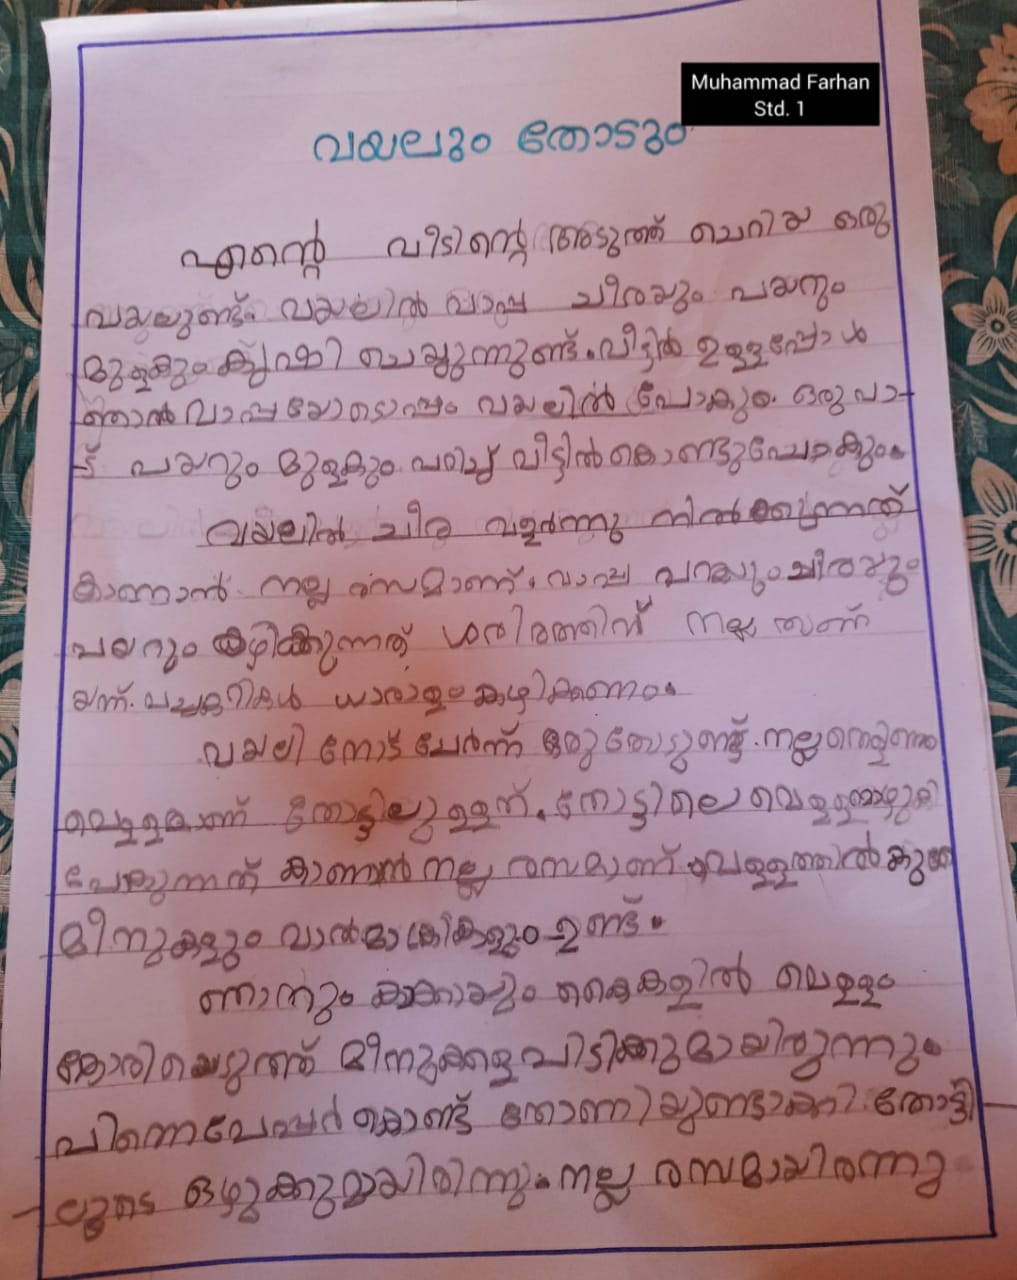 Muhammad Farhan
Std. 1
വയലും തോടും
എന്റെ വീടിന്റെ അടുത്ത് ചെറിയ ഒരു
വയലുണ്ട്. വയലിൽ വാപ്പ ചീരയും പയറും
മുളകും കൃഷി ചെയ്യുന്നുണ്ട്. വീട്ടിൽ ഉള്ളപ്പോൾ
ഞാൻ വാപ്പയോടൊപ്പം വയലിൽ പോകും. ഒരുപാ-
ട് പയറും മുളകും പറിച്ച് വീട്ടിൽ കൊണ്ടുപോകും.
വയലിൽ ചീര വളർന്നു നിൽക്കുന്നത്
കാണാൻ നല്ല രസമാണ്. വാപ്പ പറയും ചീരയും
പയറും കഴിക്കുന്നത് ശരീരത്തിന് നല്ല
പച്ചക്കറികൾ ധാരാളം കഴിക്കണം.
വയലിനോട് ചേർന്ന് ഒരു തോടുണ്ട്. നല്ല
വെള്ളമാണ് തോട്ടിലുള്ളത്. തോട്ടിലെ വെള്ളമൊഴുകി
പോകുന്നത് കാണാൻ നല്ല രസമാണ് വെള്ളത്തിൽ കുഞ്ഞു
മീനുകളും വാൽമാക്രികളും ഉണ്ട്.
ഞാനും കാക്കയും കൈകളിൽ വെള്ളം
കോരിയെടുത്ത് മീനുകളെ പിടിക്കുമായിരുന്നും.
പിന്നെ പേപ്പർ കൊണ്ട് തോണിയുണ്ടാക്കി തോട്ടി
ലൂടെ ഒഴുക്കുമായിരിന്നു. നല്ല രസമായിരന്നു